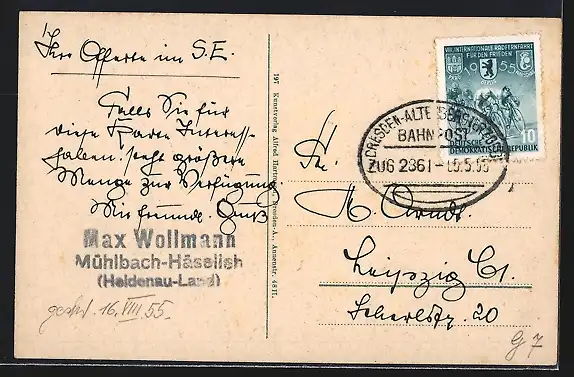 Ihre Offerte im S. E.
Falls Sie für
diese Karte Interesse
haben, steht größere
Menge zur Verfügung.
Mit freundl. Gruß
Max Wollmann
Mühlbach-Häselich
(Heidenau-Land)
16. VIII 55.
197 Kunstverlag Alfred Hartmann, Dresden-A., Annenstr. 48 II.
VIII. INTERNATIONALE RADFERNFAHRT
FÜR DEN FRIEDEN
1955
10
DEUTSCHE
DEMOKRATISCHE REPUBLIK
DRESDEN-ALTENBERG (ERZGEB)
BAHNPOST
ZUG 2361
Fa.
M. Arndt.
Leipzig C1.
20
g 7